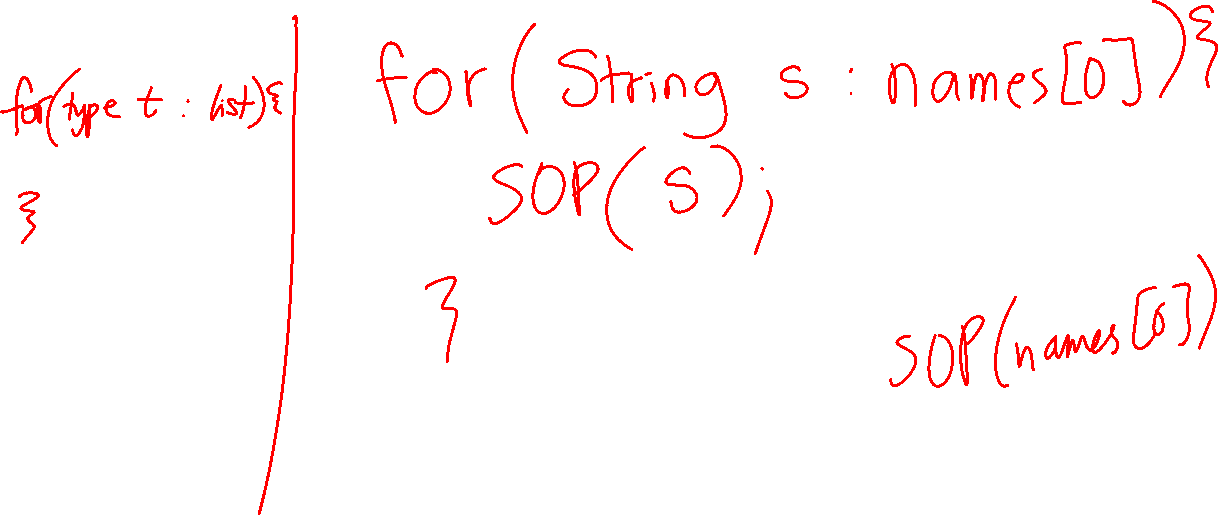 for(type t : list){
}
for(String s : names[0]){
SOP(s);
}
SOP(names[0])